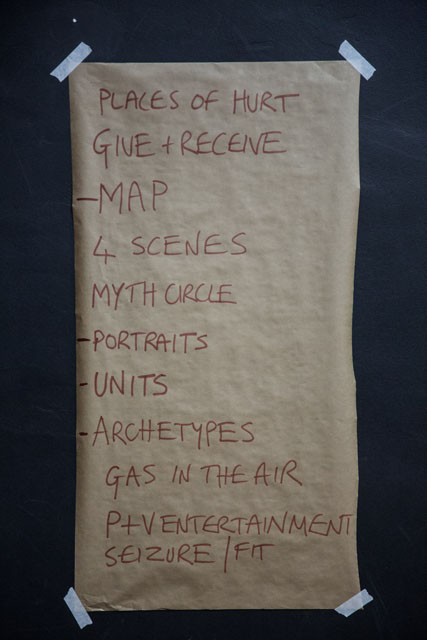 PLACES OF HURT
GIVE + RECEIVE
-MAP
4 SCENES
MYTH CIRCLE
-PORTRAITS
-UNITS
-ARCHETYPES
GAS IN THE AIR
P+V ENTERTAINMENT
SEIZURE / FIT